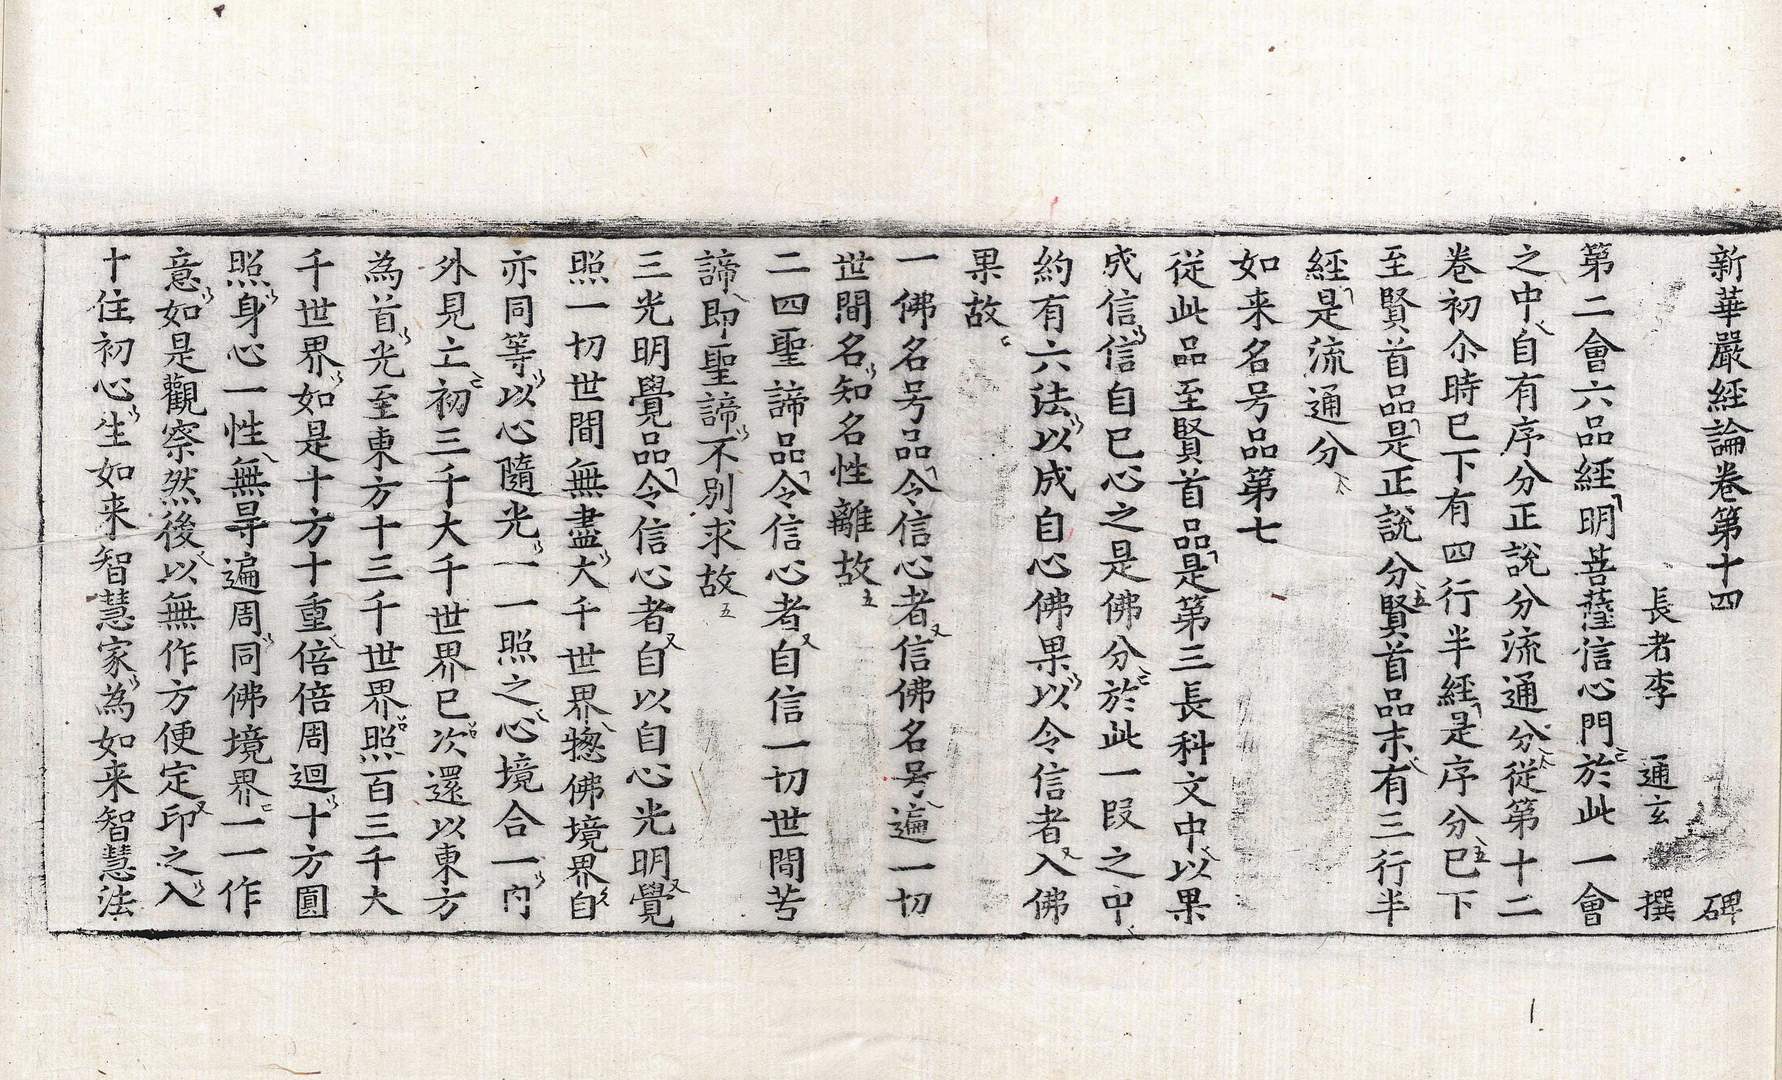 新華嚴經論卷第十四 碑
長者李 通玄 撰
第二會六品經明菩薩信心門於此一會
之中自有序分正說分流通分從第十二
卷初尒時已下有四行半經是序分已下
至賢首品是正說分賢首品末有三行半
經是流通分
如来名号品第七
從此品至賢首品是第三長科文中以果
成信信自已心之是佛分於此一段之中
約有六法以成自心佛果以令信者入佛
果故
一佛名号品令信心者信佛名号遍一切
世間名知名性離故
二四聖諦品令信心者自信一切世間苦
諦即聖諦不別求故
三光明覺品令信心者自以自心光明覺
照一切世間無盡大千世界揔佛境界自
亦同等以心隨光一一照之心境合一內
外見亡初三千大千世界已次還以東方
為首光至東方十三千世界照百三千大
千世界如是十方十重倍倍周迴十方圓
照身心一性無㝵遍周同佛境界一一作
意如是觀察然後以無作方便定印之入
十住初心生如来智慧家為如来智慧法